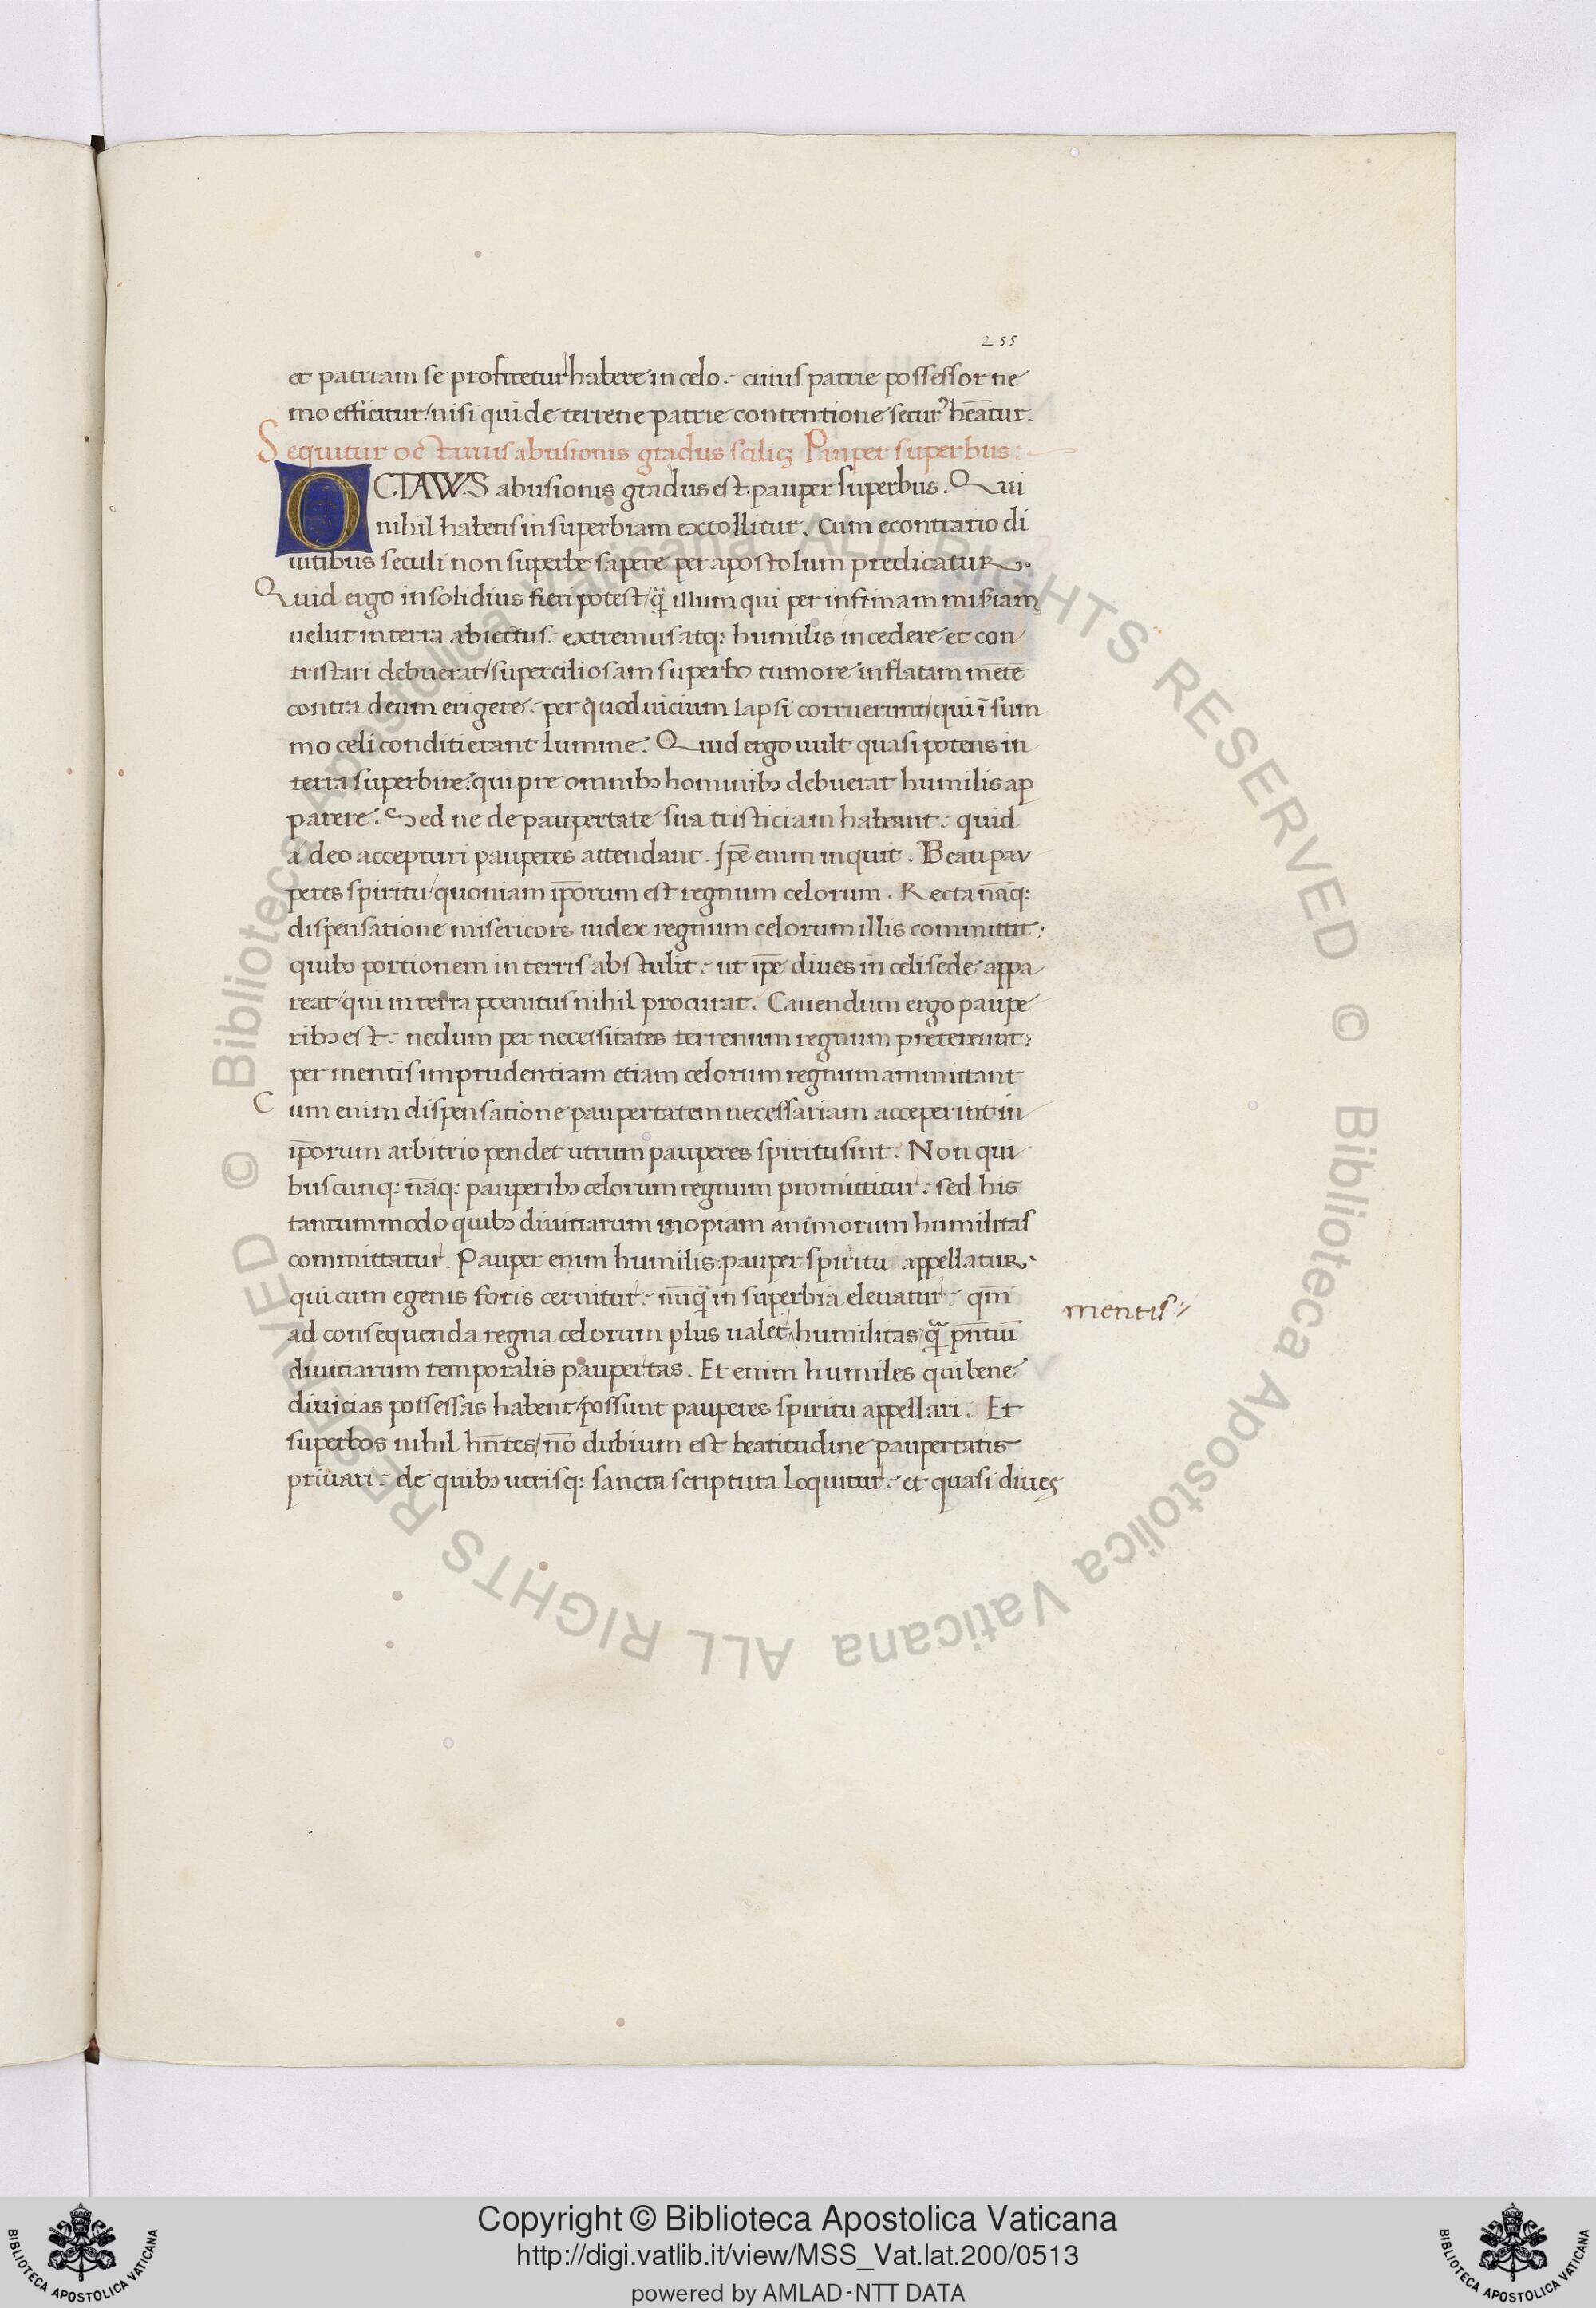 255
et patriam se profitetur habere in celo. cuius patrie possessor ne
mo efficitur/nisi qui de terrene patrie contentione securꝰ hēatur.
Sequitur octauus abusionis gradus scilicꝫ Pauper superbus:
OCTAVVS abusionis gradus est. pauper superbus. Qui
nihil habens in superbiam extollitur. Cum econtrario di
uitibus seculi non superbe sapere per apostolum predicatur.
Quid ergo insolidius fieri potest/q̃ illum qui per infimam misīam
uelut in terra abiectus. extremus atq: humilis incedere et con/
tristari debuerat/superciliosam superbo tumore inflatam mētē
contra deum erigere. per quod uicium lapsi corruerunt/qui ī sum
mo celi conditi erant lumine. Quid ergo uult quasi potens in
terra superbire. qui pre omnibꝫ hominibꝫ debuerat humilis ap
parere. Sed ne de paupertate sua tristiciam habeant. quid
a deo accepturi pauperes attendant. Ip̄e enim inquit. Beati pau
peres spiritu/quoniam ip̄orum est regnum celorum. Recta nāq:
dispensatione misericors iudex regnum celorum illis committit:
quibꝫ portionem in terris abstulit. ut ip̄e diues in celi sede appa
reat/qui in terra poenitus nihil procurat. Cauendum ergo paupe
ribꝫ est. nedum per necessitates terrenum regnum pretereunt:
per mentis imprudentiam etiam celorum regnum ammittant
Cum enim dispensatione paupertatem necessariam acceperint in
ip̄orum arbitrio pendet utrum pauperes spiritu sint. Non qui
buscunq: nāq: pauperibꝫ celorum regnum promittitur. sed his
tantummodo quibꝫ diuitiarum inopiam animorum humilitas
committatur. Pauper enim humilis. pauper spiritu appellatur.
qui cum egenis foris cernitur. nūq̃ in superbia eleuatur. qm̄
mentis
ad consequenda regna celorum plus ualet humilitas/q̃ p̄ntiū
diuitiarum temporalis paupertas. Et enim humiles qui bene
diuicias possessas habent/possunt pauperes spiritu appellari. Et
superbos nihil hn̄tes/nō dubium est beatitudine paupertatis
priuari. de quibꝫ utrisq: sancta scriptura loquitur. et quasi diues
Copyright © Biblioteca Apostolica Vaticana
http://digi.vatlib.it/view/MSS_Vat.lat.200/0513
powered by AMLAD·NTT DATA
BIBLIOTECA APOSTOLICA VATICANA
BIBLIOTECA APOSTOLICA VATICANA
© Biblioteca Apostolica Vaticana ALL RIGHTS RESERVED
© Biblioteca Apostolica Vaticana ALL RIGHTS RESERVED